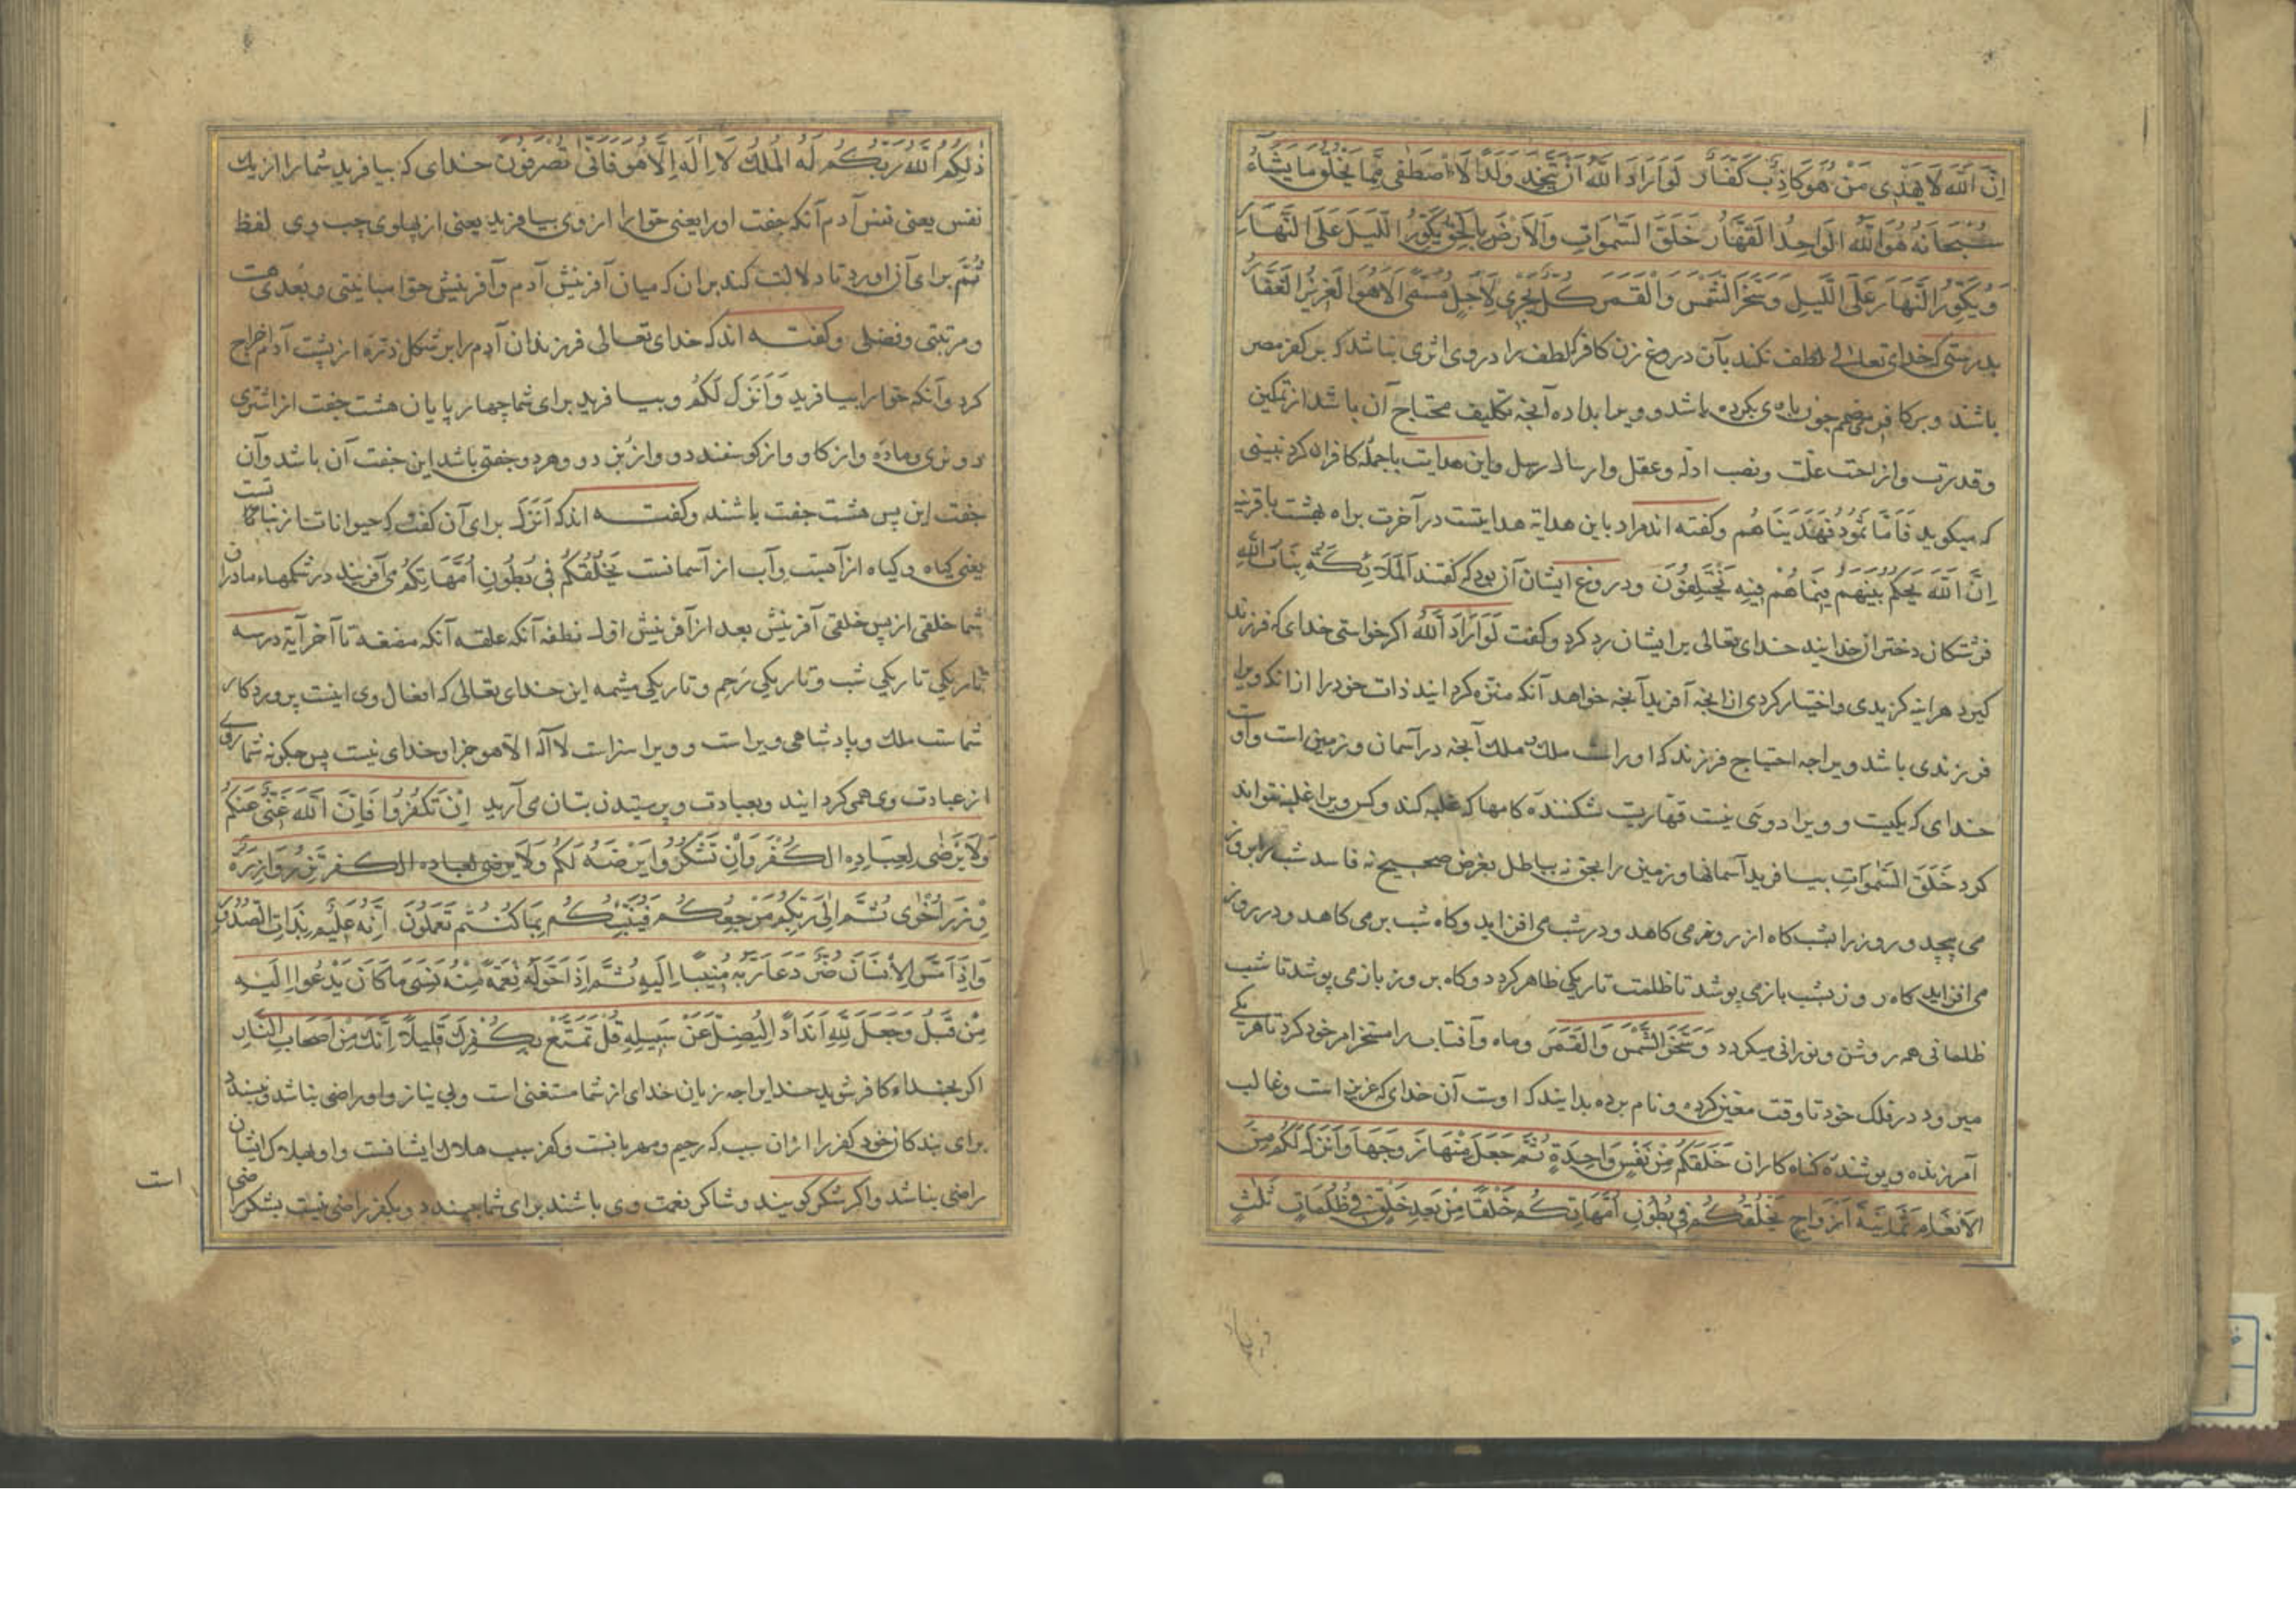 اِنَّ اللّٰهَ لَا يَهْدِى مَنْ هُوَ كَاذِبٌ كَفَّارٌ لَوْ اَرَادَ اللّٰهُ اَنْ يَتَّخِذَ وَلَدًا لَاصْطَفٰى مِمَّا يَخْلُقُ مَا يَشَآءُ
سُبْحَانَهُ هُوَ اللّٰهُ الْوَاحِدُ الْقَهَّارُ خَلَقَ السَّمٰوَاتِ وَالْاَرْضَ بِالْحَقِّ يُكَوِّرُ اللَّيْلَ عَلَى النَّهَارِ
وَيُكَوِّرُ النَّهَارَ عَلَى اللَّيْلِ وَسَخَّرَ الشَّمْسَ وَالْقَمَرَ كُلٌّ يَجْرِى لِاَجَلٍ مُسَمًّى اَلَا هُوَ الْعَزِيْزُ الْغَفَّارُ
بدرستى كه خداى تعالى لطف نكند بآن دروغ زن كافر كه لطف را در وى اثرى نباشد كه بر كفر مصر
باشند و بر كافر باشد و ويرا بداده آنجه تكليف محتاج آن باشد از تمكين
و قدرت و ازاحت علت و نصب ادله و عقل و ارسال رسل و اين هدايت باجمله كافران كرد نبينى
كه ميكويد فَاَمَّا ثَمُوْدُ فَهَدَيْنَاهُمْ و كفته اند مراد باين هداية هدايتست در آخرت براه بهشت باقرنيه
اِنَّ اللّٰهَ يَحْكُمُ بَيْنَهُمْ فِيمَاهُمْ فِيْهِ يَخْتَلِفُوْنَ و دروغ ايشان آن بود كه كفتند اَلْمَلَائِكَةُ بَنَاتُ اللّٰهِ
فرشتكان دختران خدايند خداى تعالى بر ايشان رد كرد و كفت لَوْ اَرَادَ اللّٰهُ اكر خواستى خداى كه فرزند
كيرد هراينه كزيدى و اختيار كردى از آنجه آفريد آنجه خواهد آنكه منزه كردانيد ذات خود را از آنكه ويرا
فرزندى باشد ويرا جه احتياج فرزند كه او راست ملك ملك آنجه در آسمان و زمين است و اوست
خداى كه يكيست و ويرا دومى نيست قهاريت شكننده كامها كه غلبه كند و كس ويرا غلبه نتواند
كرد خَلَقَ السَّمٰوَاتِ بيافريد آسمانها و زمين را بحق نه بباطل بغرض صحيح نه فاسد شب را بر روز
مى پيچد و روز را بشب كاه از روز مى كاهد و در شب مى افزايد و كاه شب برمى كاهد و در روز
مى افزايد كاه روز بشب بازمى پوشد تا ظلمت تاريكى ظاهر كردد و كاه بر روز بازمى پوشد تا شب
ظلمانى همه روشن و نورانى ميكردد وَسَخَّرَ الشَّمْسَ وَالْقَمَرَ و ماه و آفتاب را مسخر امر خود كرد تا هر يكى
ميرود در فلك خود تا وقت معين كرده و نام برده بدانيد كه اوست آن خداى كه عزيز است و غالب
آمرزنده و پوشنده كناه كاران خَلَقَكُمْ مِنْ نَفْسٍ وَاحِدَةٍ ثُمَّ جَعَلَ مِنْهَا زَوْجَهَا وَاَنْزَلَ لَكُمْ مِنَ
الْاَنْعَامِ ثَمَانِيَةَ اَزْوَاجٍ يَخْلُقُكُمْ فِى بُطُوْنِ اُمَّهَاتِكُمْ خَلْقًا مِنْ بَعْدِ خَلْقٍ فِى ظُلُمَاتٍ ثَلٰثٍ
ذٰلِكُمُ اللّٰهُ رَبُّكُمْ لَهُ الْمُلْكُ لَا اِلٰهَ اِلَّا هُوَ فَاَنّٰى تُصْرَفُوْنَ خداى كه بيافريد شما را از يك
نفس يعنى نفس آدم آنكه جفت اورا يعنى حوا را از وى بيافريد يعنى از پهلوى چپ وى لفظ
ثُمَّ براى آن اورد تا دلالت كند بر ان كه ميان آفرينش آدم و آفرينش حوا مباينتى و بعدى هست
و مرتبتى و فضلى و كفته اند كه خداى تعالى فرزندان آدم را بر شكل ذره از پشت آدم اخراج
كرد و آنكه حوا را بيافريد وَاَنْزَلَ لَكُمْ و بيافريد براى شما چهار پايان هشت جفت از اشترى
دو نرى و ماده و از كاو و از كوسفند دو و از بز دو و هر دو جفتى باشد اين جفت آن باشد و آن
جفت اين پس هشت جفت باشند و كفته اند كه اَنْزَلَ براى آن كفت كه حيوانات از نباتست
يعنى كياه و كياه از آبست و آب از آسمانست يَخْلُقُكُمْ فِى بُطُوْنِ اُمَّهَاتِكُمْ مى آفريند در شكمهاء مادران
شما خلقى از پس خلقى آفرينش بعد از آفرينش اول نطفه آنكه علقه آنكه مضغه تا آخر آية در سه
تاريكى تاريكى شب و تاريكى رحم و تاريكى مشيمه اين خداى تعالى كه افعال وى اينست پروردكار
شماست ملك و پادشاهى ويراست و ويرا سزاست لا اله الا هو جز او خداى نيست پس چكونه شما روى
از عبادت وى همى كردانيد و بعبادت و پرستيدن بتان مى آريد اِنْ تَكْفُرُوْا فَاِنَّ اللّٰهَ غَنِىٌّ عَنْكُمْ
وَلَا يَرْضٰى لِعِبَادِهِ الْكُفْرَ وَاِنْ تَشْكُرُوْا يَرْضَهُ لَكُمْ وَلَا تَزِرُ وَازِرَةٌ
وِزْرَ اُخْرٰى ثُمَّ اِلٰى رَبِّكُمْ مَرْجِعُكُمْ فَيُنَبِّئُكُمْ بِمَا كُنْتُمْ تَعْمَلُوْنَ اِنَّهُ عَلِيْمٌ بِذَاتِ الصُّدُوْرِ
وَاِذَا مَسَّ الْاِنْسَانَ ضُرٌّ دَعَا رَبَّهُ مُنِيْبًا اِلَيْهِ ثُمَّ اِذَا خَوَّلَهُ نِعْمَةً مِنْهُ نَسِىَ مَا كَانَ يَدْعُوْا اِلَيْهِ
مِنْ قَبْلُ وَجَعَلَ لِلّٰهِ اَنْدَادًا لِيُضِلَّ عَنْ سَبِيْلِهِ قُلْ تَمَتَّعْ بِكُفْرِكَ قَلِيْلًا اِنَّكَ مِنْ اَصْحَابِ النَّارِ
اكر بخداء كافر شويد خدايرا جه زيان خداى از شما مستغنى است و بى نياز و او راضى نباشد و نپسندد
براى بندكان خود كفر را از ان سبب كه رحيم و مهربانست و كفر سبب هلاك ايشانست و او بهلاك ايشان
راضى نباشد و اكر شكر كويند و شاكر نعمت وى باشند براى شما بپسندد و بكفر راضى نيست بشكر راضى
است